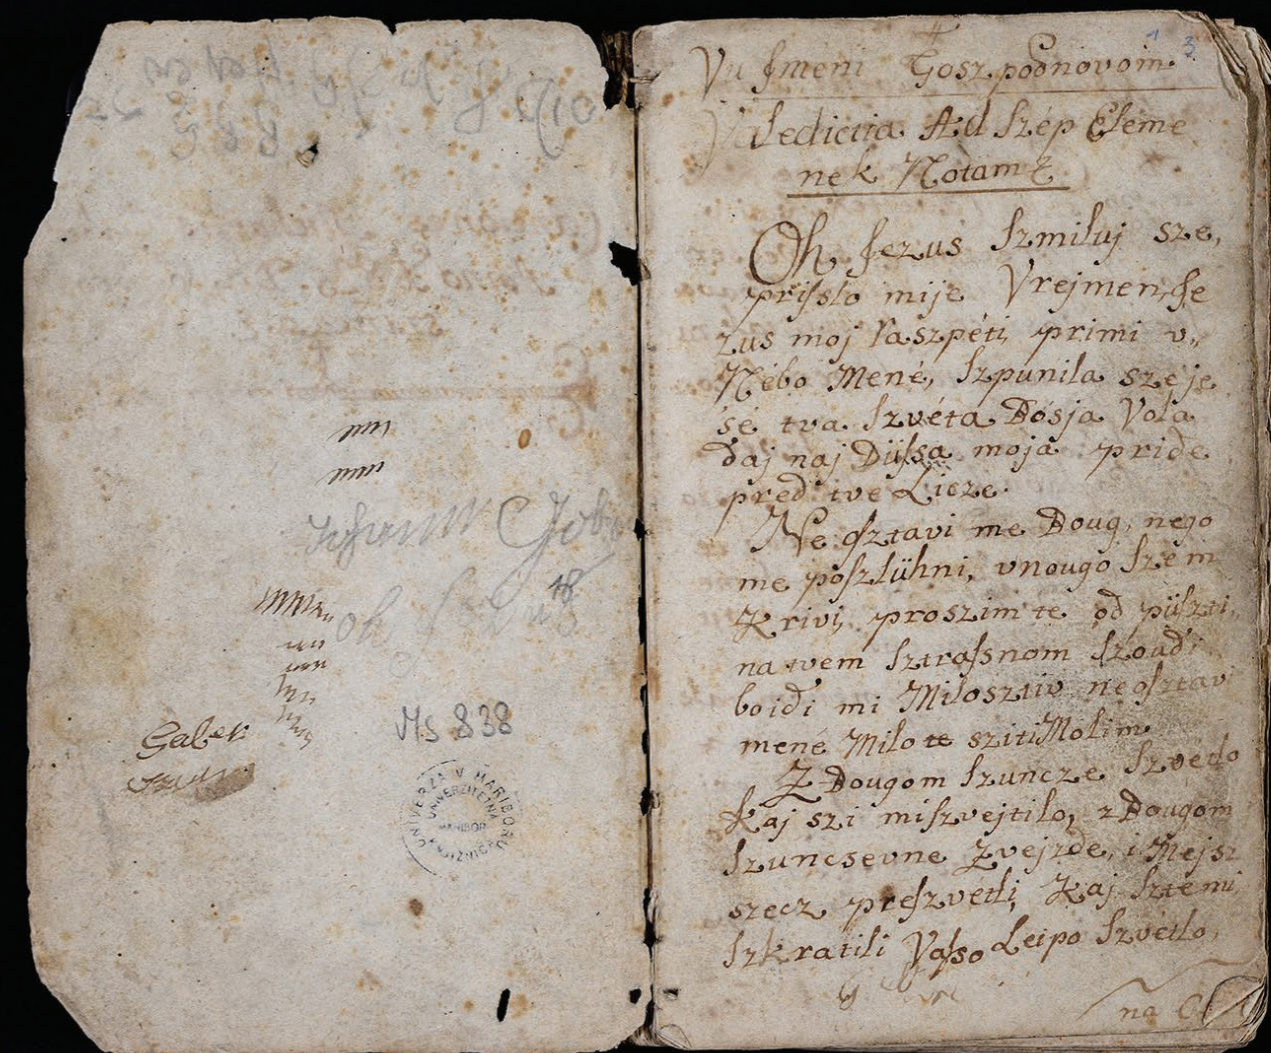 MS 838
Johann
18
Gaber
UNIVERZA V MARIBORU
UNIVERZITETNA
MARIBOR
KNJIŽNICA
1 3
Vu Jmeni Goszpodnovom
Valedictia Ad Szép Eleme
nek Notam
Oh Jezus szmiluj sze,
prisslo mije Vrejmen, Je
zus moj raszpéti, primi v,,
Nébo Mené, Szpunila sze je
sé tva Szvéta Bósja Vola
daj naj Düssa moja pride
pred tve Licze.
Ne osztavi me Doug, nego
me poszlühni, vnougo szem
Krivi, proszim te od püszti,
na tvem sztrassnom szoudi
boidi mi Milosztiv neosztav
mené Milo te szitiMolim
Z Dougom szuncze szvetlo
kaj szi miszvejtilo, z Dougom
szuncsevne zvejzde, i Mejsz
szecz preszvetli, Kaj szte mi
szkratili Vasso Leipo szvetlo,
na